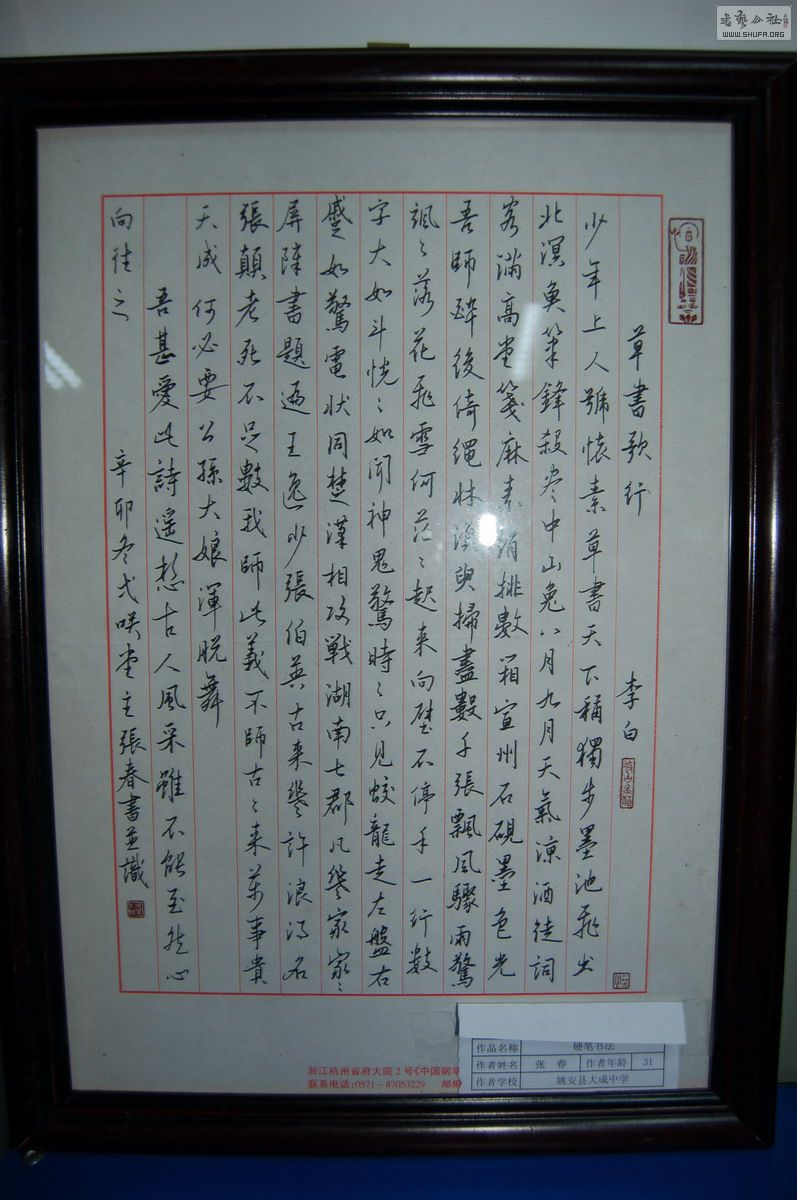 草書歌行
李白
少年上人號懷素草書天下稱獨步墨池飛出
北溟魚筆鋒殺盡中山兔八月九月天氣涼酒徒詞
客滿高堂箋麻素絹排數箱宣州石硯墨色光
吾師醉後倚繩牀須臾掃盡數千張飄風驟雨驚
颯〻落花飛雪何茫〻起来向壁不停手一行數
字大如斗恍〻如聞神鬼驚時〻只見蛟龍走左盤右
蹙如驚電狀同楚漢相攻戰湖南七郡凡幾家家〻
屏障書題遍王逸少張伯英古来幾許浪得名
張顛老死不足數我師此義不師古〻来萬事貴
天成何必要公孫大娘渾脱舞
吾甚愛此詩遥想古人風采雖不能至然心
向往之
辛卯冬弌咲堂主張春書並識
浙江杭州省府大院2号《中国钢笔
联系电话:0571-87053229 邮编
作品名称 硬笔书法
作者姓名 张春 作者年龄 31
作者学校 姚安县大成中学
WWW.SHUFA.ORG